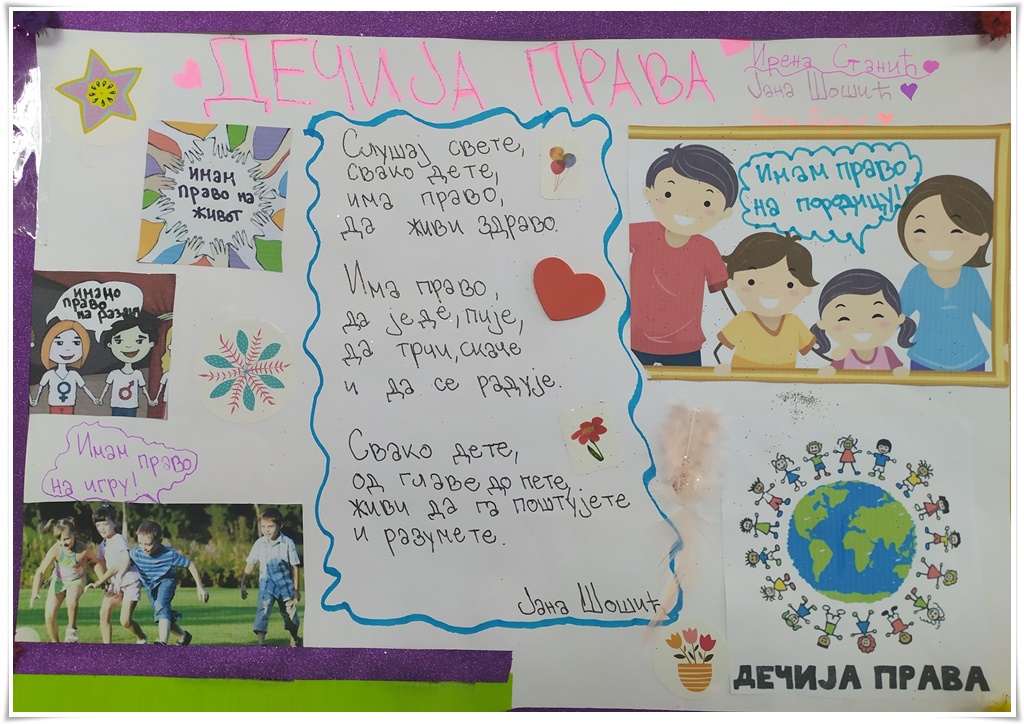 ДЕЧИЈА ПРАВА
Ирена Станић
Јана Шошић
имам
право на
живот
Слушај свете,
свако дете,
има право,
да живи здраво.
Има право,
да једе, пије,
да трчи, скаче
и да се радује.
Свако дете,
од главе до пете,
живи да га поштујете
и разумете.
Јана Шошић
Имам право
на породицу!
имамо
право
на
Имам право
на игру!
ДЕЧИЈА ПРАВА